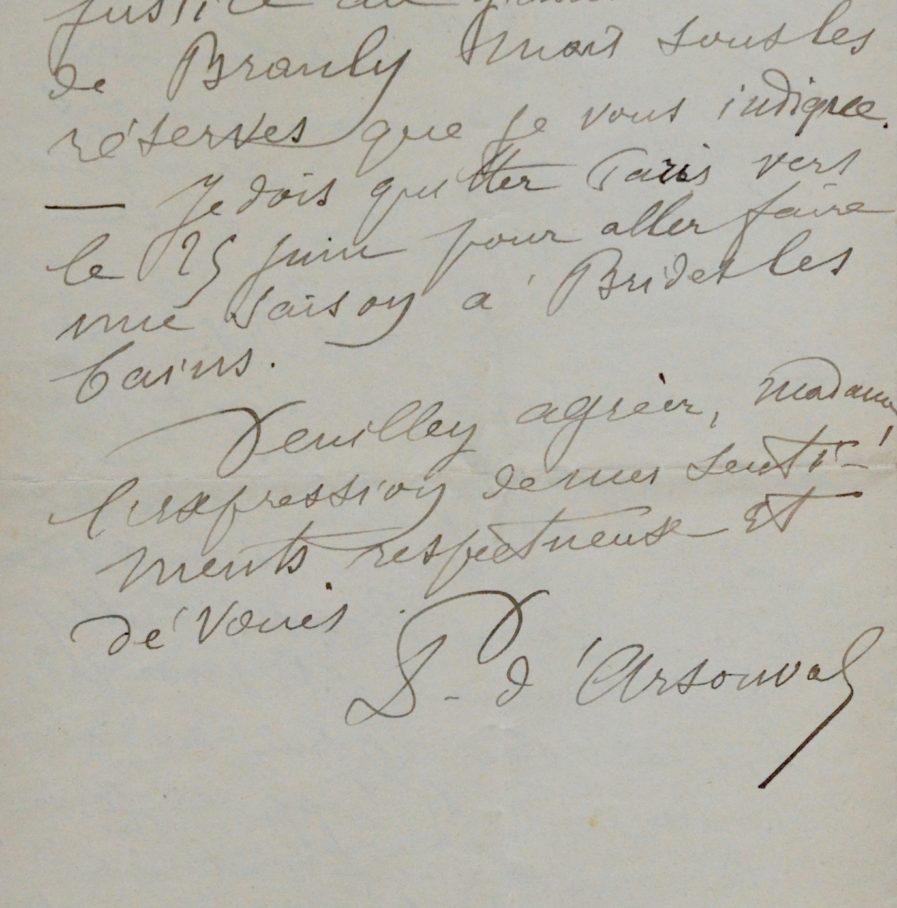 justice au
de Branly mais sous les
réserves que je vous indique.
— Je dois quitter Paris vers
le 25 juin pour aller faire
une saison à Brides les
bains.
Veuillez agréer, madame,
l'expression de mes senti-
ments respectueux et
dévoués.
Dr d'Arsonval